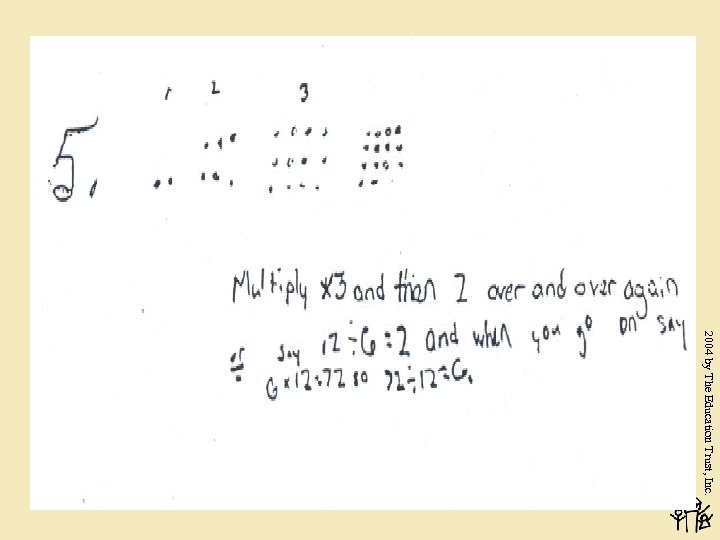 1 2 3
5.
Multiply x3 and then 2 over and over again
or say 12÷6=2 and when you go on say
6x12=72 so 72÷12=6.
2004 by The Education Trust, Inc.